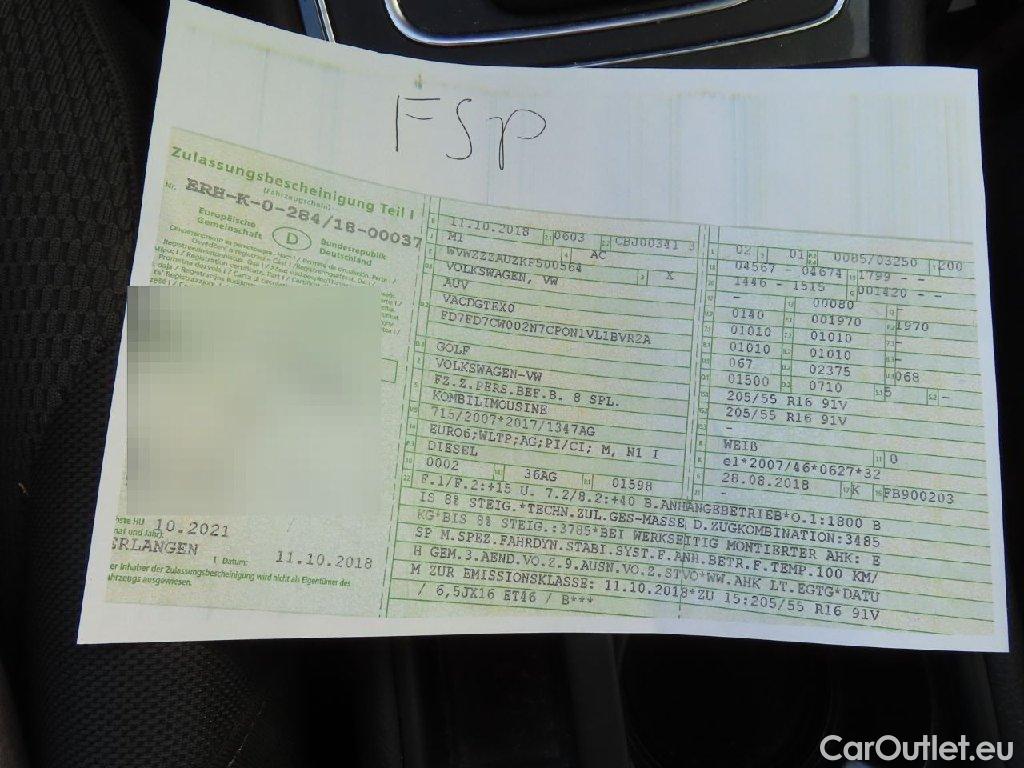 FSP
Zulassungsbescheinigung Teil I
(Fahrzeugschein)
Nr. ERH-K-0-284/18-00037
Europäische
Gemeinschaft
D
Bundesrepublik
Deutschland
10.2021
ERLANGEN
Datum: 11.10.2018
er Inhaber der Zulassungsbescheinigung wird nicht als Eigentümer des
Fahrzeugs ausgewiesen.
11.10.2018 0603 CBJ00341 3
M1 AC
WVWZZZAUZKP500564
VOLKSWAGEN, VW X
AUV
VACDGTEX0
FD7FD7CW002N7CPON1VL1BVR2A
GOLF
VOLKSWAGEN-VW
FZ.Z.PERS.BEF.B. 8 SPL.
KOMBILIMOUSINE
715/2007*2017/1347AG
EURO6;WLTP;AG;PI/CI; M, N1 I
DIESEL
0002 36AG 01598
02 01 0085/03250 200
04567 - 04674 1799 - -
1446 - 1515 001420 - -
- 00080 -
0140 001970 1970
01010 01010 -
01010 01010 -
067 02375 068
01500 0710 5 -
205/55 R16 91V
205/55 R16 91V
-
WEIß 0
e1*2007/46*0627*32
28.08.2018 K FB900203
-
F.1/F.2:+15 U. 7.2/8.2:+40 B.ANHÄNGEBETRIEB*O.1:1800 B
IS 8% STEIG.*TECHN.ZUL.GES-MASSE D.ZUGKOMBINATION:3485
KG*BIS 8% STEIG.:3785*BEI WERKSEITIG MONTIERTER AHK: E
SP M.SPEZ.FAHRDYN.STABI.SYST.F.ANH.BETR.F.TEMP.100 KM/
H GEM.3.AEND.VO.Z.9.AUSN.VO.Z.STVO*WW.AHK LT.EGTG*DATU
M ZUR EMISSIONSKLASSE: 11.10.2018*ZU 15:205/55 R16 91V
/ 6,5JX16 ET46 / B***
CarOutlet.eu